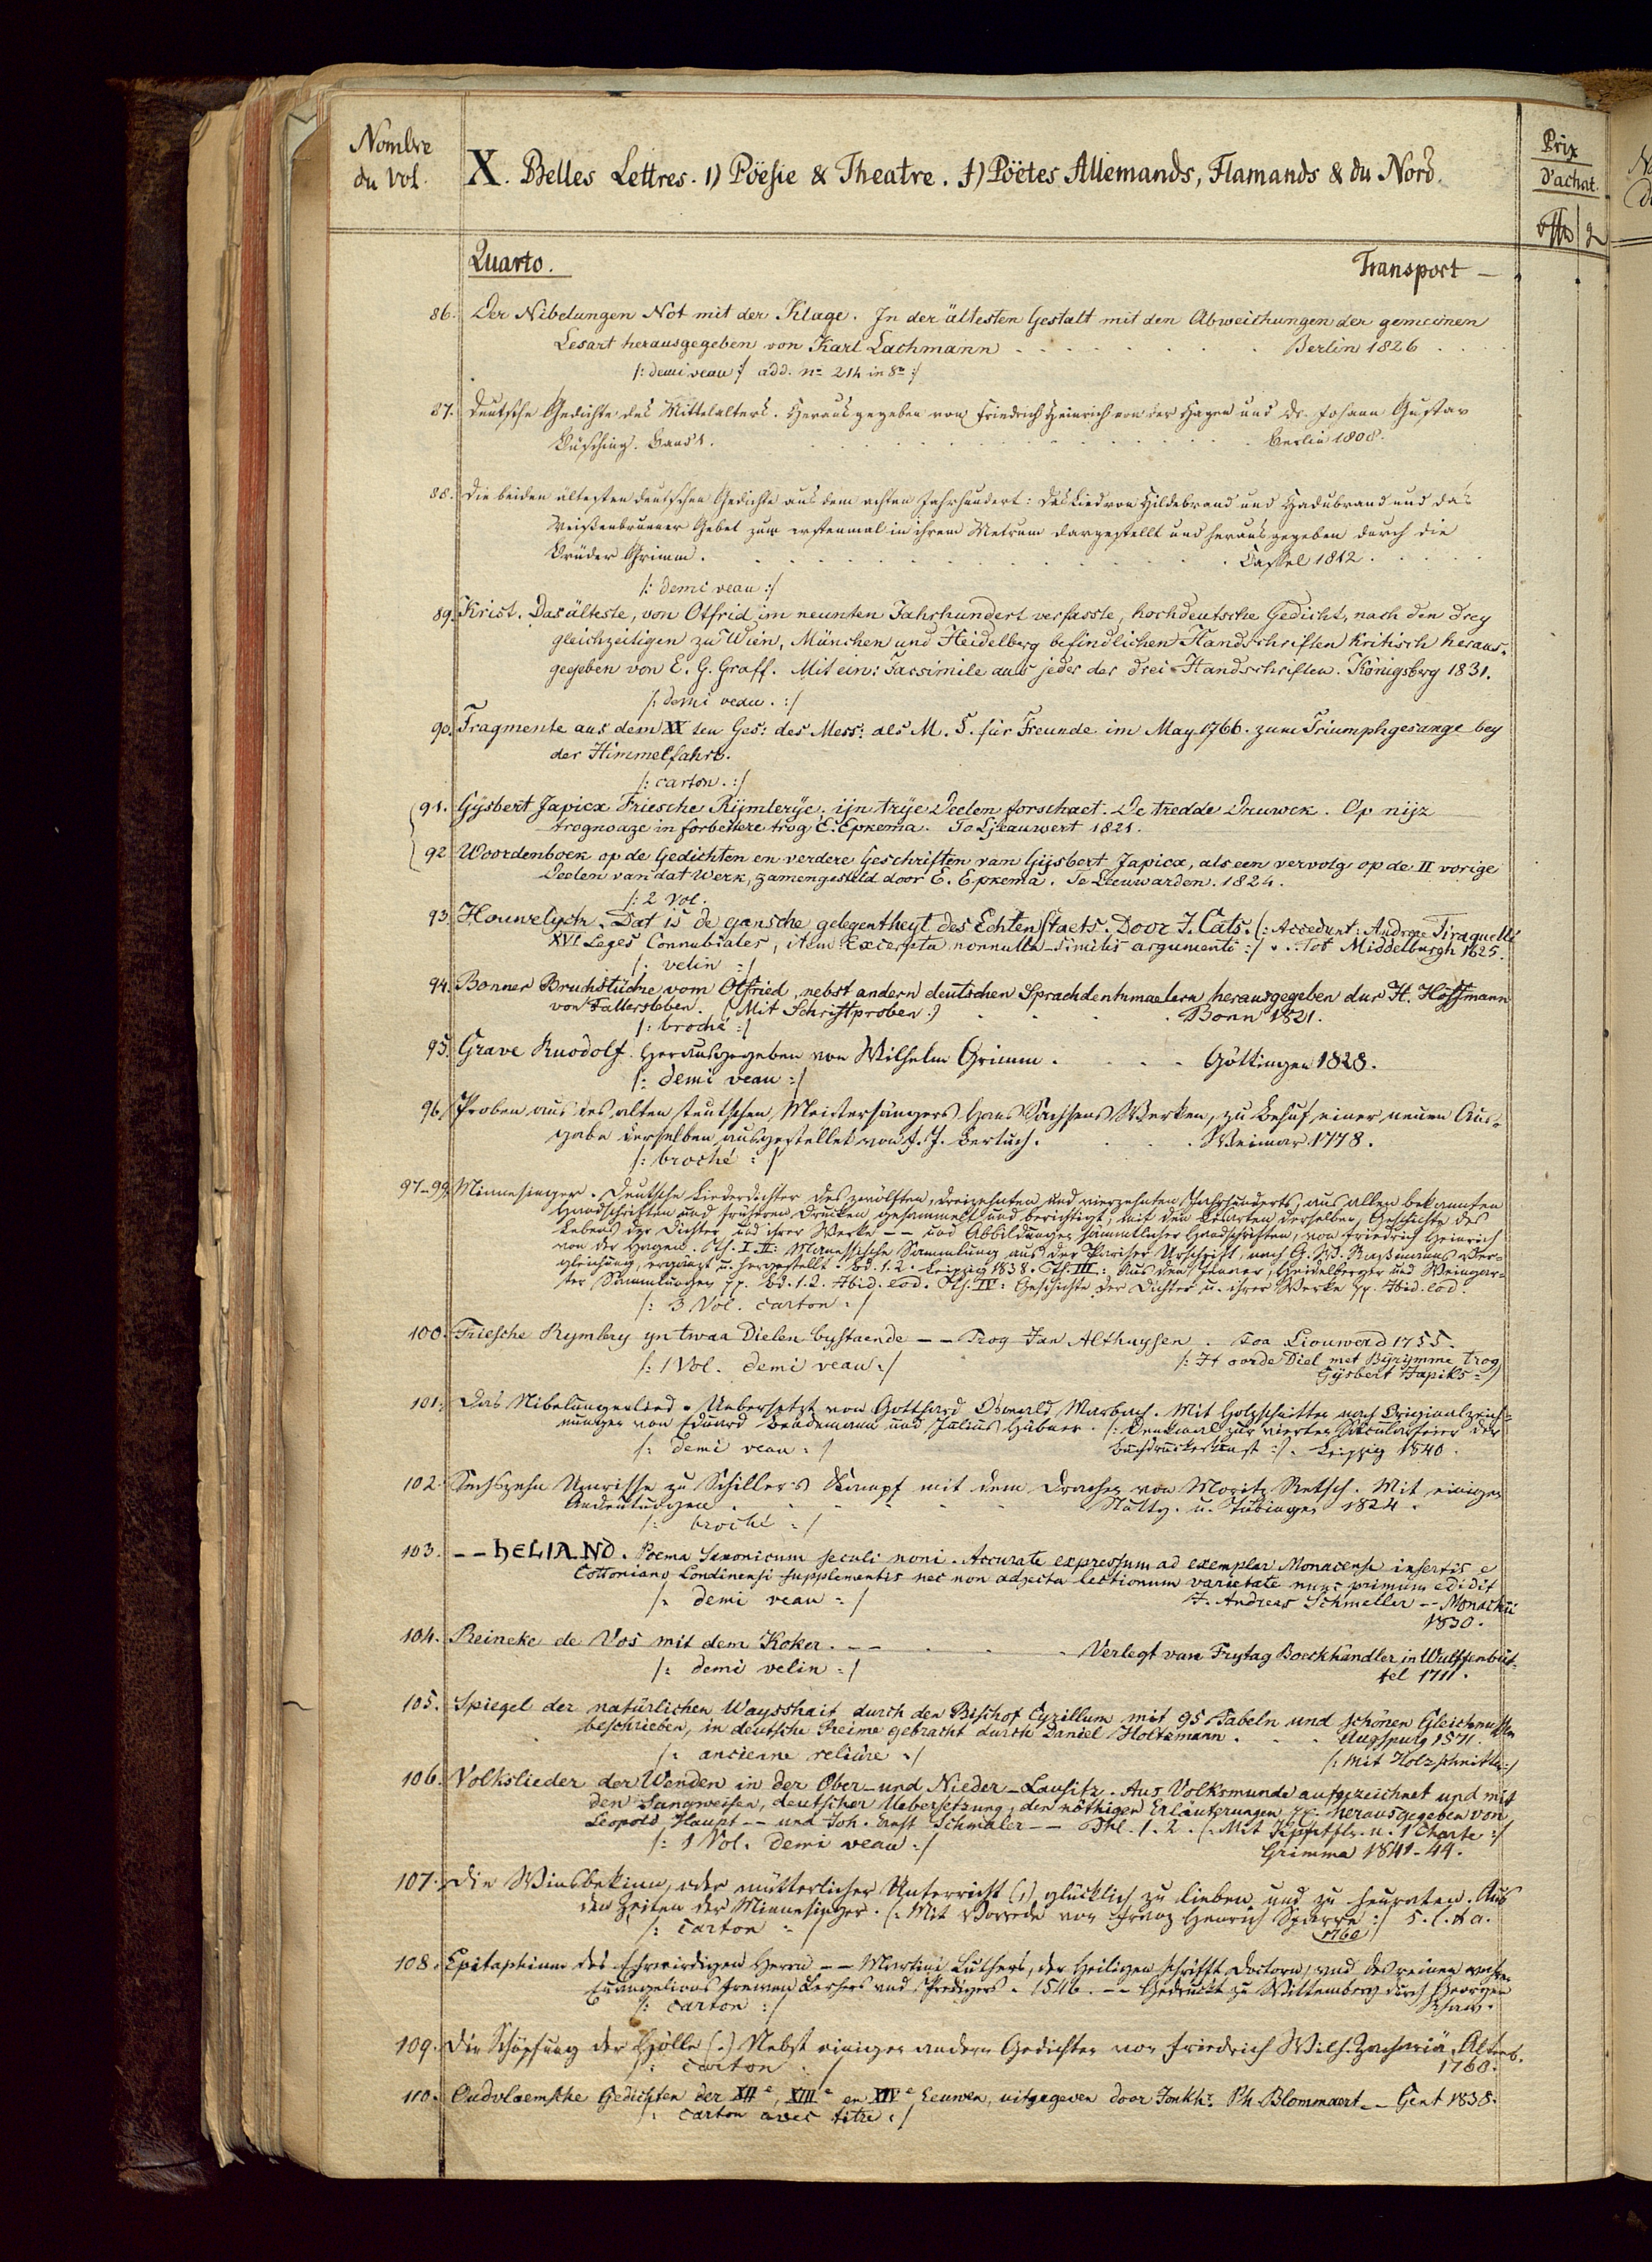 Nombre
du Vol.
X. Belles Lettres. 1) Pöesie & Theatre. f) Pöëtes Allemands, Flamands & du Nord.
Prix
d'achat.
Quarto.
Transport —
86. Der Nibelungen Not mit der Klage. In der ältesten Gestalt mit den Abweichungen der gemeinen
Lesart herausgegeben von Karl Lachmann . . . . . . Berlin 1826 . . .
/: demi veau :/ add. no 214 in 8o :/
87. Deutsche Gedichte des Mittelalters. Herausgegeben von Friedrich Heinrich von der Hagen und Dr. Johann Gustav
Büsching. Band 1. . . . . . . . Berlin 1808.
88. Die beiden ältesten deutschen Gedichte aus dem achten Jahrhundert: Das Lied von Hildebrand und Hadubrand und das
Weißenbrunner Gebet zum erstenmal in ihrem Metrum dargestellt und herausgegeben durch die
Brüder Grimm. . . . . . . . Cassel 1812. . . .
/: demi veau :/
89. Krist. Das älteste, von Otfrid im neunten Jahrhundert verfasste, hochdeutsche Gedicht, nach den drey
gleichzeitigen zu Wien, München und Heidelberg befindlichen Handschriften kritisch heraus-
gegeben von E. G. Graff. Mit ein: Facsimile aus jeder der drei Handschriften. Königsbrg 1831.
/: demi veau. :/
90. Fragmente aus dem XX ten Ges: des Mess: als M. S. für Freunde im May 1766. zum Triumphgesange bey
der Himmelfahrt.
/: carton. :/
91. Gysbert Japicx Friesche Rijmlerÿe; ijn trije Deelen forschaet. De tredde Druwck. Op nijz
trognoaze in forbettere trog E. Epkema. To Ljeauwert 1821.
92 Woordenboek op de Gedichten en verdere Geschriften van Gijsbert Japicx, als een vervolg op de II vorige
Deelen van dat Werk, zamengesteld door E. Epkema. Te Leeuwarden. 1824.
/: 2 Vol.
93. Houwelych. Dat is de gansche gelegentheyt des Echten Staets. Door J. Cats. (: Accedunt: Andreæ Tiraquelli
XVI Leges Connubiales, item Excerpta nonnulla similis argumenti :/ . . Tot Middelburgh 1625.
/: velin :/
94. Bonner Bruchstücke vom Otfried, nebst andern deutschen Sprachdenkmaelern herausgegeben dur H. Hoffmann
von Fallersleben. (Mit Schriftproben.) . . . Bonn 1821.
/: broché :/
95. Grave Ruodolf. Herausgegeben von Wilhelm Grimm. . . . Göttingen 1828.
/: demi veau :/
96. Proben aus des alten teutschen Meistersängers Hans Sachsens Werken, zu Behuf einer neuen Aus-
gabe derselben ausgestellet von F. J. Bertuch. . . . Weimar 1778.
/: broché :/
97–99. Minnesinger. Deutsche Liederdichter des zwölften, dreizehnten und vierzehnten Jahrhunderts, aus allen bekannten
Handschriften und früheren Drucken gesammelt und berichtigt, mit den Lesarten derselben, Geschichte des
Lebens der Dichter und ihrer Werke –– und Abbildungen sämmtlicher Handschriften, von Friedrich Heinrich
von der Hagen. Th. I. II: Manessische Sammlung aus der Pariser Urschrift, nach G. W. Raßmanns Ver-
gleichung, ergänzt u. hergestellt. Bd. 1. 2. Leipzig 1838. Th. III.: Aus den Jenaer, Heidelberger und Weingar-
ter Sammlungen pp. Bd. 1. 2. Ibid. eod. Th. IV: Geschichte der Dichter u. ihrer Werke pp. Ibid. eod.
/: 3 Vol. carton :/
100. Friesche Rymlery yn twaa Dielen bystaende –– Trog Jan Althuysen . Toa Liouwerd 1755.
/: 1 Vol. demi veau :/ /: It oorde Diel met Byrymme trog
Gysbert Japiks :/
101. Das Nibelungenlied. Uebersetzt von Gotthard Oswald Marbach. Mit Holzschnitten nach Originalzeich-
nungen von Eduard Bendemann und Julius Hübner. /: Denkmal zur vierten Säcularfeier der
/: demi veau :/ Buchdruckerkunst :/. Leipzig 1840.
102. Sechszehn Umrisse zu Schiller's Kampf mit dem Drachen von Moritz Retsch. Mit einigen
Andeutungen . . . . . . Stuttg. u. Tübingen 1824.
/: broché :/
103. –– HELIAND. Poema Saxonicum seculi noni. Accurate expressum ad exemplar Monacense insertis e
Cottoniano Londinensi supplementis nec non adjecta lectionum varietate nunc primum edidit
/: demi veau :/ J. Andreas Schmeller –– Monachii
1830.
104. Reineke de Vos mit dem Koker. –– . . . Verlegt van Frytag Boeckhändler in Wulffenbüt-
/: demi velin :/ tel 1711.
105. Spiegel der natürlichen Waysshait durch den Bischof Cyrillum mit 95 Fabeln und schönen Gleichnussen
beschrieben, in deutsche Reime gebracht durch Daniel Holtzmann. . . Augspurg 1571.
/: ancienne reliûre :/ /: Mit Holzschnitten :/
106. Volkslieder der Wenden in der Ober- und Nieder-Lausitz. Aus Volksmunde aufgezeichnet und mit
den Sangweisen, deutscher Uebersetzung, den nöthigen Erläuterungen pp. herausgegeben von
Leopold Haupt –– und Joh. Ernst Schmaler –– Thl. 1. 2. (: Mit Kpfrtfln. u. 1 Charte :/
/: 1 Vol. demi veau :/ Grimma 1841-44.
107. Die Winsbekinn, oder mütterlicher Unterricht (,) glücklich zu lieben und zu heuraten. Aus
den Zeiten der Minnesinger. (: Mit Vorrede von Franz Henrich Sparre :/ s. l. & a.
/: carton :/ (1760)
108. Epitaphium des Ehrwirdigen Herrn –– Martini Luthers, der Heiligen schrifft Doctorn, und des reinen waren
Euangelions trewen Lerhers und Predigers. 1546. –– Gedruckt zu Wittemberg durch Georgen
/: carton :/ Rhaw.
109. Die Schöpfung der Hölle (.) Nebst einigen andern Gedichten von Friedrich Wilh. Zachariä. Altenb.
/: carton :/ 1760.
110. Oudvlaemsche Gedichten der XIIe, XIIIe en XIVe Eeuwen, uitgegeven door Jonkhr. Ph. Blommaert –– Gent 1838.
/: carton avec titre :/